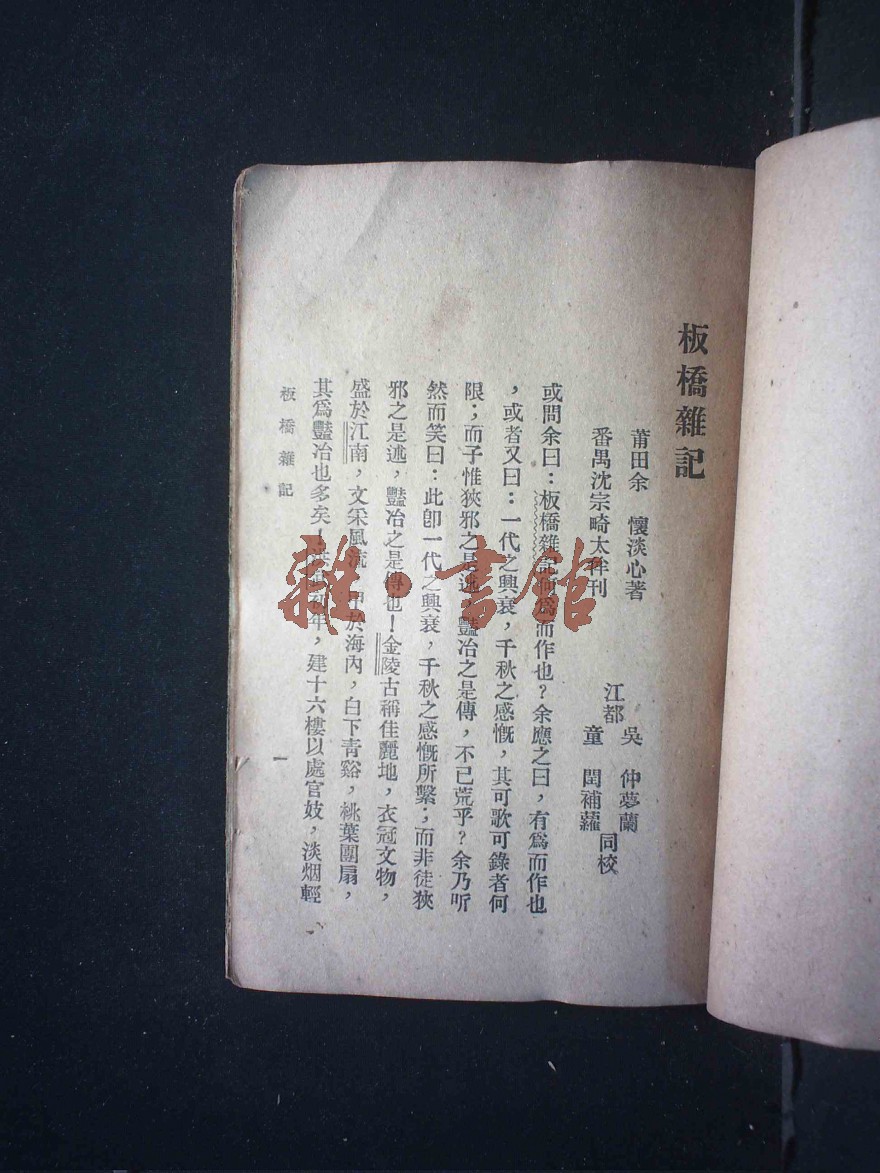 板橋雜記
莆田余 懷淡心著
番禺沈宗畸太侔刊
江都 吳 仲夢蘭
童 閏補蘿 同校
或問余曰：板橋雜記何爲而作也？余應之曰，有爲而作也
，或者又曰：一代之興衰，千秋之感慨，其可歌可錄者何
限；而子惟狹邪之是述，豔冶之是傳，不已荒乎？余乃听
然而笑曰：此卽一代之興衰，千秋之感慨所繫；而非徒狹
邪之是述，豔冶之是傳也！金陵古稱佳麗地，衣冠文物，
盛於江南，文采風流，甲於海內，白下靑谿，桃葉團扇，
其爲豔冶也多矣！洪武初年，建十六樓以處官妓，淡烟輕
板橋雜記
一
雜·書館